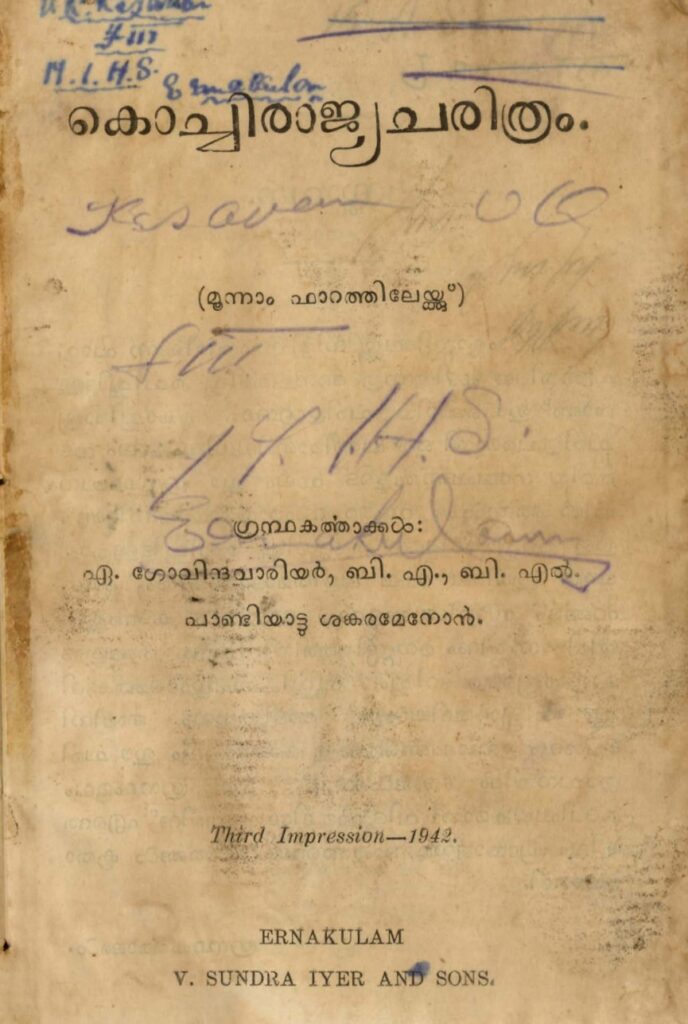 U. K. Kesavan
F III
M. I. H. S.
Ernakulam
കൊച്ചിരാജ്യചരിത്രം.
Kesavan U K
(മൂന്നാം ഫാറത്തിലേയ്ക്കു്)
F III
M. I. H. S.
Ernakulam
ഗ്രന്ഥകർത്താക്കൾ:
ഏ. ഗോവിന്ദവാരിയർ, ബി. എ., ബി. എൽ.
പാണ്ടിയാട്ടു ശങ്കരമേനോൻ.
Third Impression—1942.
ERNAKULAM
V. SUNDRA IYER AND SONS.